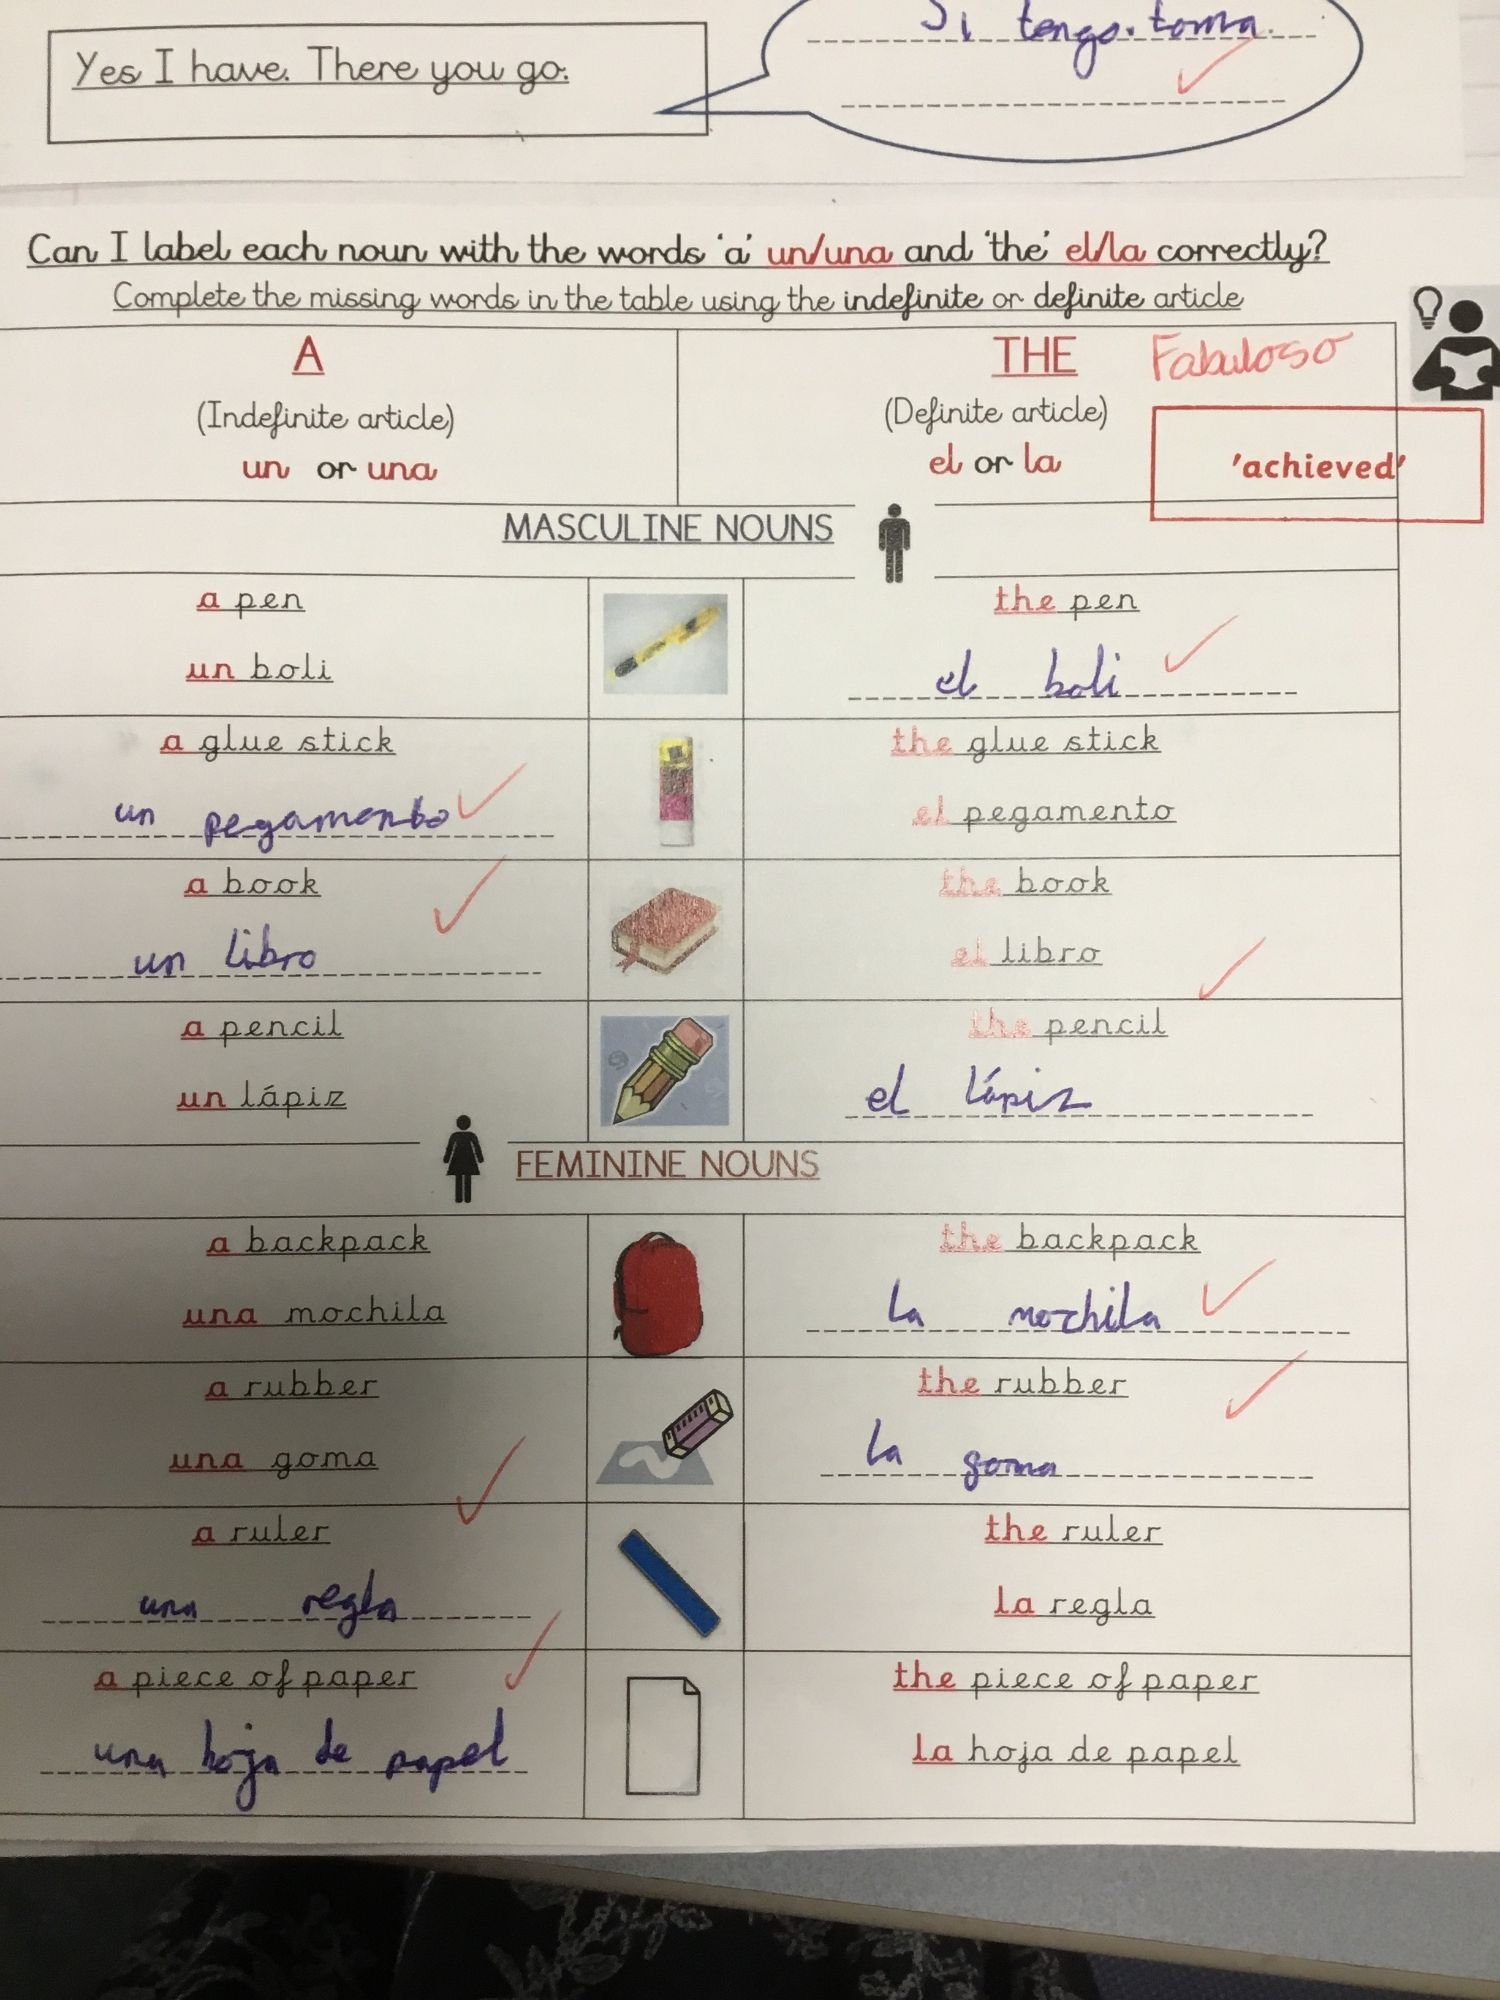 Si tengo. toma.
Yes I have. There you go.
Can I label each noun with the words 'a' un/una and 'the' el/la correctly?
Complete the missing words in the table using the indefinite or definite article
A
(Indefinite article)
un or una
THE
(Definite article)
el or la
Fabuloso
'achieved'
MASCULINE NOUNS
a pen
un boli
the pen
el boli
a glue stick
un pegamento
the glue stick
el pegamento
a book
un libro
the book
el libro
a pencil
un lápiz
the pencil
el lápiz
FEMININE NOUNS
a backpack
una mochila
the backpack
la mochila
a rubber
una goma
the rubber
la goma
a ruler
una regla
the ruler
la regla
a piece of paper
una hoja de papel
the piece of paper
la hoja de papel